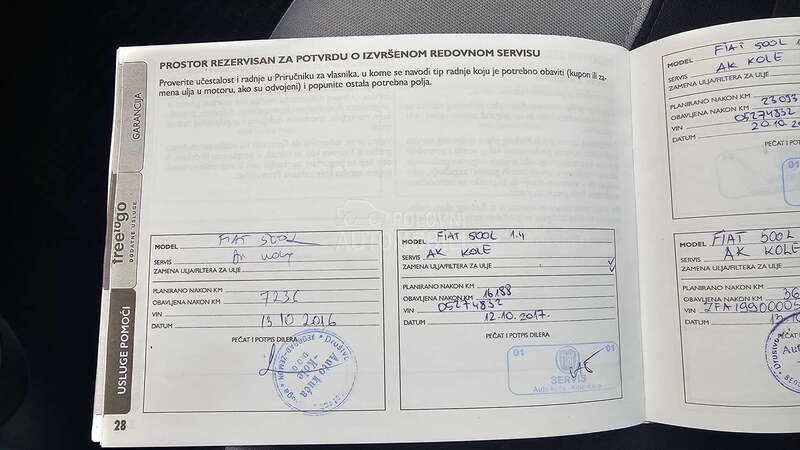 PROSTOR REZERVISAN ZA POTVRDU O IZVRŠENOM REDOVNOM SERVISU
Proverite učestalost i radnje u Priručniku za vlasnika, u kome se navodi tip radnje koju je potrebno obaviti (kupon ili za-
mena ulja u motoru, ako su odvojeni) i popunite ostala potrebna polja.
GARANCIJA
freetogo
DODATNE USLUGE
USLUGE POMOĆI
POLOVNI
MODEL FIAT 500L
SERVIS AK
ZAMENA ULJA/FILTERA ZA ULJE
PLANIRANO NAKON KM
OBAVLJENA NAKON KM 7236
VIN
DATUM 13 10 2016
PEČAT I POTPIS DILERA
Auto kuća
Kole
MODEL FIAT 500L 1.4
SERVIS AK KOLE
ZAMENA ULJA/FILTERA ZA ULJE
PLANIRANO NAKON KM
OBAVLJENA NAKON KM 16188
VIN 05274832
DATUM 12.10.2017.
PEČAT I POTPIS DILERA
01 01
SERVIS
28
MODEL FIAT 500L 1.4
SERVIS AK KOLE
ZAMENA ULJA/FILTERA ZA ULJE
PLANIRANO NAKON KM
OBAVLJENA NAKON KM 23093
VIN 05274832
DATUM 20.10.
PEČAT I POTPIS
01
MODEL FIAT 500L
SERVIS AK KOLE
ZAMENA ULJA/FILTERA ZA ULJE
PLANIRANO NAKON KM
OBAVLJENA NAKON KM 36
VIN ZFA19900005
DATUM 13.10
PEČAT I